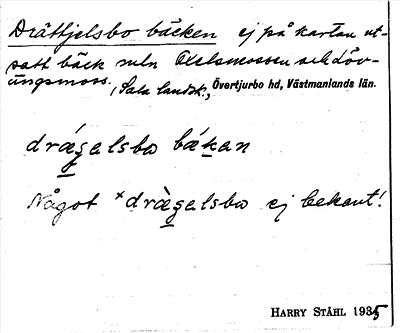 Drättjelsbo bäcken ej på kartan ut-
satt bäck mln Axelsmossen och Löv-
ängsmoss. , Sala landsk., Övertjurbo hd, Västmanlands län.
drägelsbo bäkan
Något ˣdrägelsbo ej bekant!
HARRY STÅHL 1935